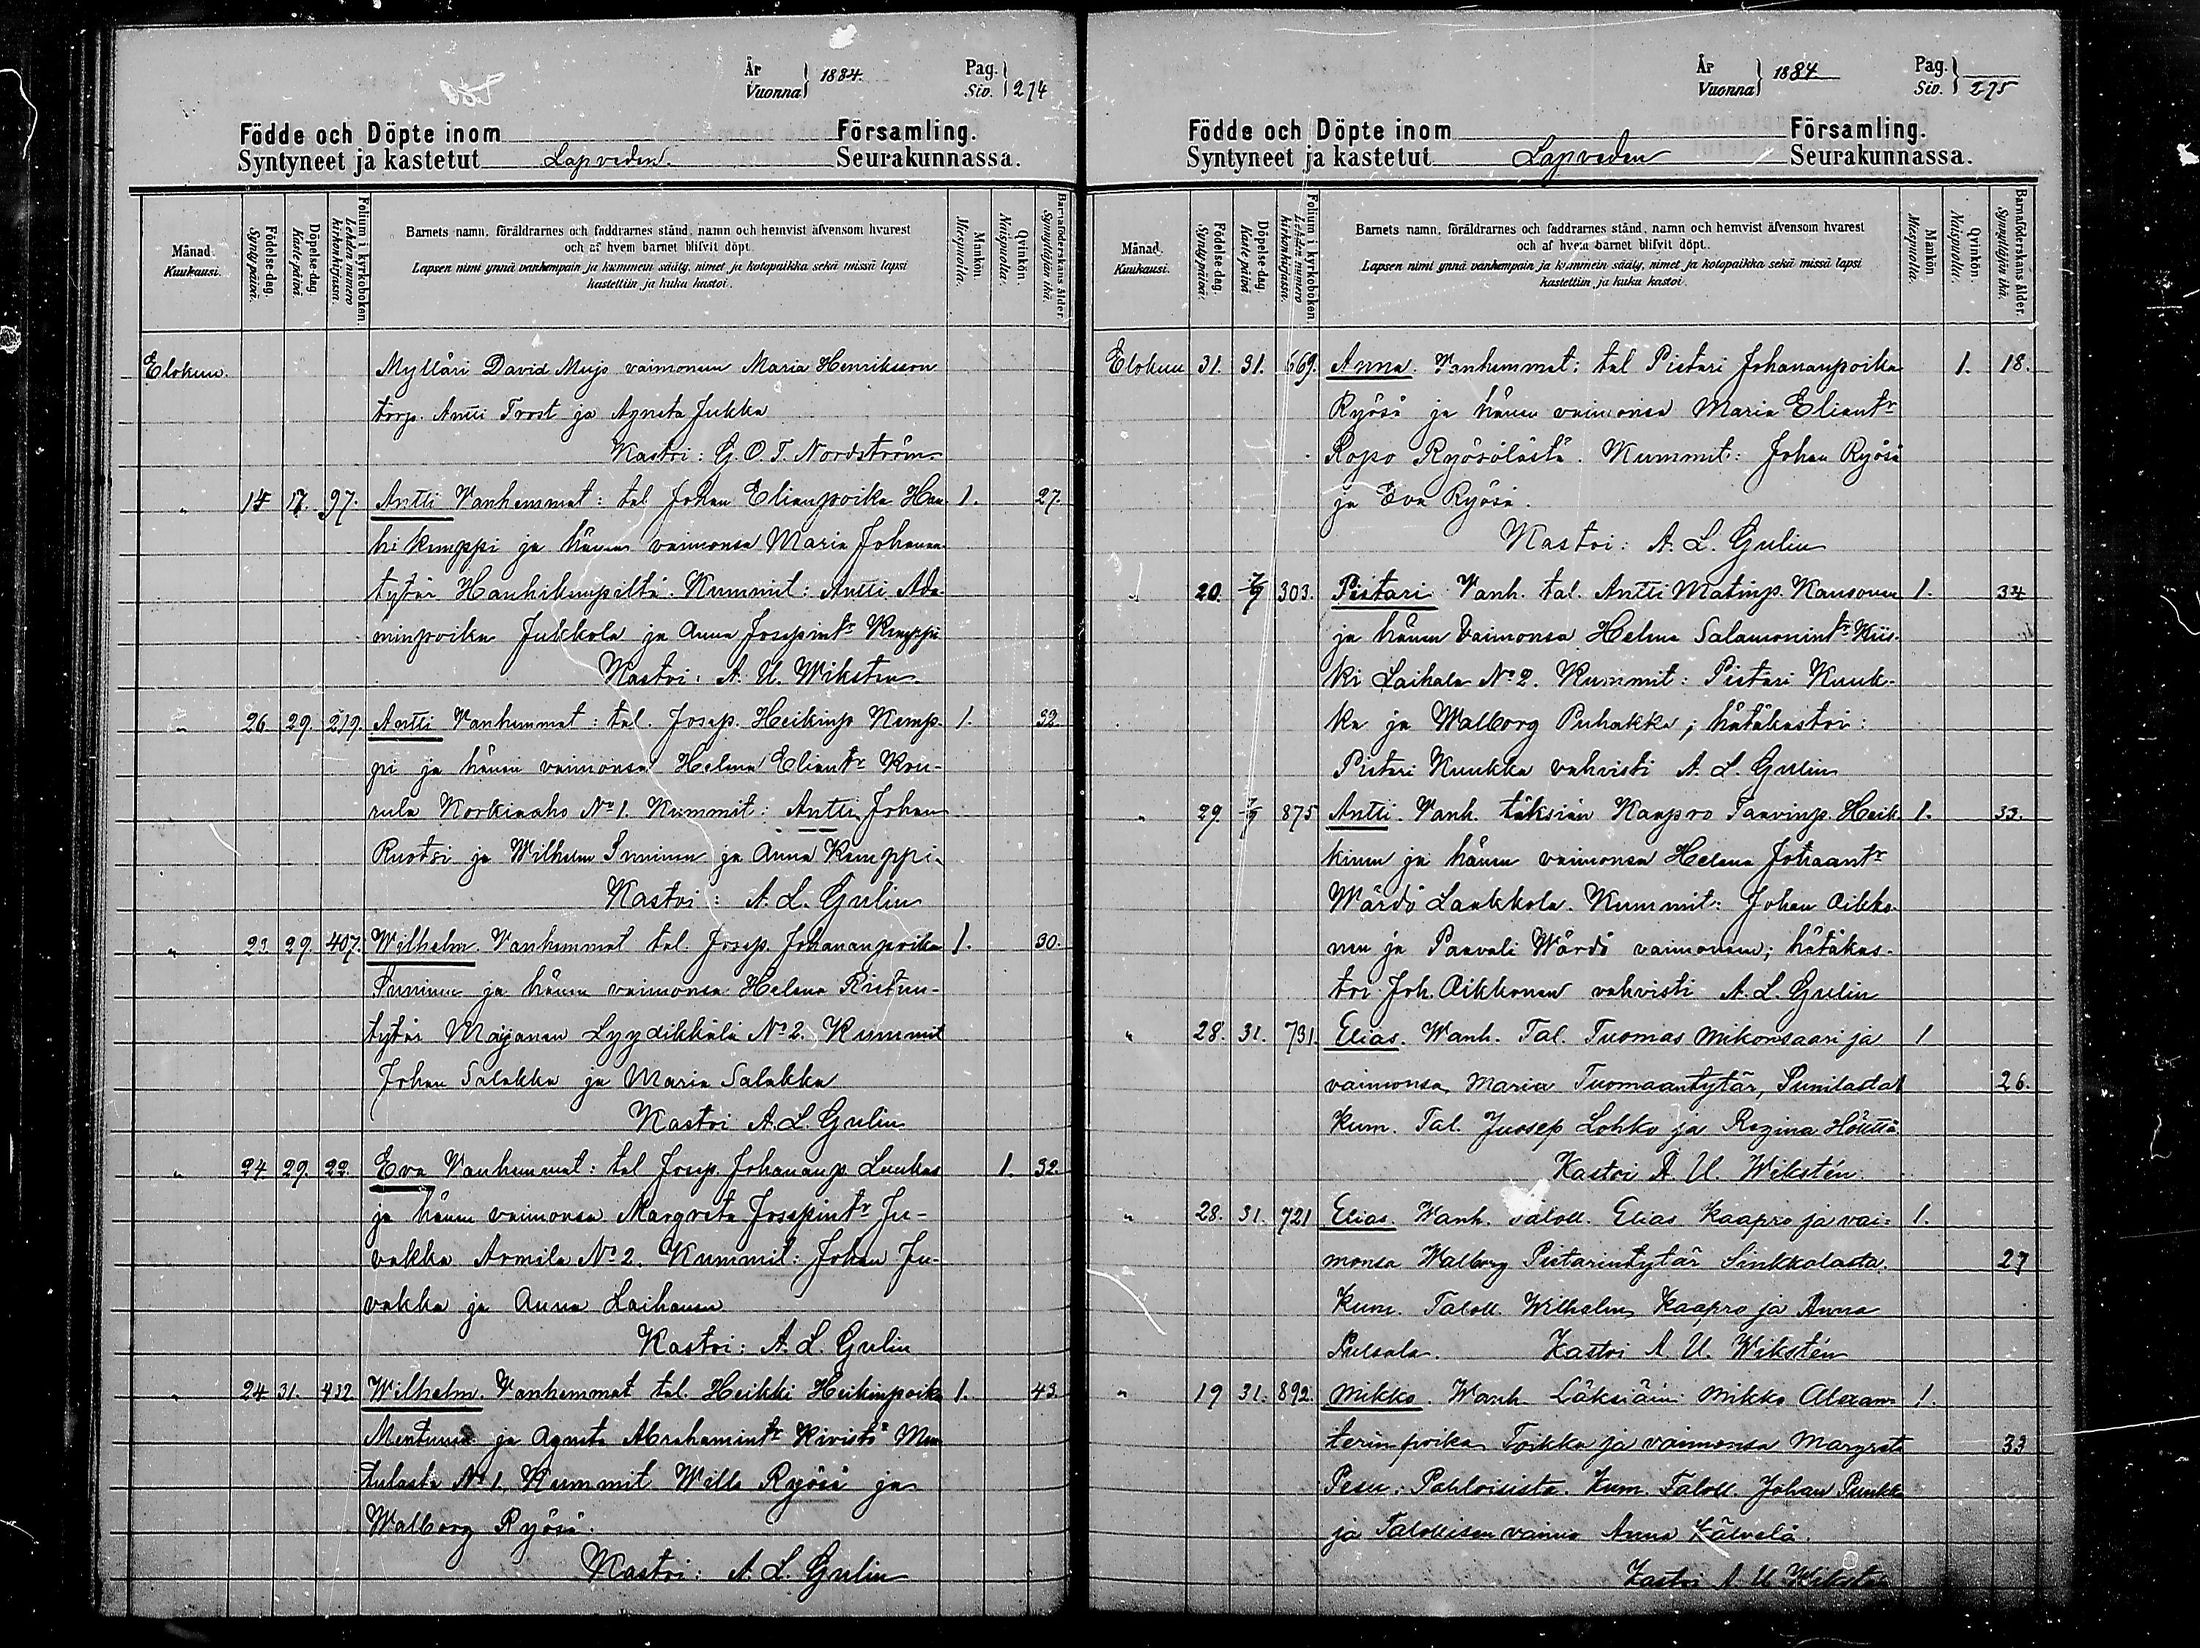 År
Vuonna } 1884.
Pag.
Siv. } 274
Födde och Döpte inom Församling.
Syntyneet ja kastetut Lapveden Seurakunnassa.
Månad. Kuukausi.
Födelse-dag. Synty päivä.
Döpelse-dag. Kaste päivä.
Folium i kyrkoboken. Lehden numero kirkonkirjassa.
Barnets namn, föräldrarnes och faddrarnes stånd, namn och hemvist äfvensom hvarest
och af hvem barnet blifvit döpt.
Lapsen nimi ynnä vanhempain ja kummein sääty, nimet ja kotopaikka sekä missä lapsi
kastettiin ja kuka kastoi.
Mankön. Miespuolta.
Qvinkön. Naispuolta.
Barnaföderskans ålder. Synnyttäjän ikä.
Elokuu. Mylläri David Mujo vaimonsa Maria Henriksson
torp. Antti Trost ja Agneta Jukka
Kastoi: G. O. T. Nordström
" 14 17. 97. Antti Vanhemmat: tal Johan Elianpoika Han- 1. 27.
hikemppi ja hänen vaimonsa Maria Johanan-
tytär Hanhikempiltä. Kummit: Antti Ada-
minpoika Jukkola ja Anna Josepintr Kemppi
Kastoi: A. U. Wiksten.
" 26. 29. 219. Antti Vanhemmat: tal. Josep. Heikinp Kemp- 1. 32
pi ja hänen vaimonsa Helena Eliantr Kou-
rula Korkiaaho No 1. Kummit: Antti Johan
Ruotsi ja Wilhelm Suninen ja Anna Kemppi.
Kastoi: A. L. Gulin
" 23. 29. 407. Wilhelm. Vanhemmat tal. Josep. Johananpoika 1. 30.
Suninen ja hänen vaimonsa Helena Ristun-
tytär Majanen Lyydikkälä No 2. Kummit
Johan Salakka ja Maria Salakka
Kastoi A. L. Gulin
" 24 29. 22. Eva Vanhemmat: tal Josep. Johananp. Luukas 1. 32.
ja hänen vaimonsa Margreta Josepintr Ju-
vakka Armila No 2. Kummit: Johan Ju-
vakka ja Anna Laihanen
Kastoi: A. L. Gulin
" 24 31. 432 Wilhelm. Vanhemmat tal. Heikki Heikinpoika 1. 43.
Mentunen ja Agneta Abrahamintr Kivistö Men-
tulasta No 1. Kummit Wille Ryösä ja
Walborg Ryösä.
Kastoi: A. L. Gulin
År
Vuonna } 1884
Pag.
Siv. } 275
Födde och Döpte inom Församling.
Syntyneet ja kastetut Lapveden Seurakunnassa.
Månad. Kuukausi.
Födelse-dag. Synty päivä.
Döpelse-dag. Kaste päivä
Folium i kyrkoboken. Lehden numero kirkonkirjassa.
Barnets namn, föräldrarnes och faddrarnes stånd, namn och hemvist äfvensom hvarest
och af hvem barnet blifvit döpt.
Lapsen nimi ynnä vanhempain ja kummein sääty, nimet ja kotopaikka sekä missä lapsi
kastettiin ja kuka kastoi.
Mankön. Miespuolta.
Qvinkön. Naispuolta.
Barnaföderskans ålder. Synnyttäjän ikä.
Elokuu 31. 31. 669. Anna. Vanhemmat: tal Pietari Johananpoika 1. 18.
Ryösä ja hänen vaimonsa Maria Eliantr
Ropo Ryösölästä. Kummit: Johan Ryösä
ja Eva Ryösä.
Kastoi: A. L. Gulin
" 20. 7/9 303. Pietari Vanh. tal. Antti Matinp. Kansonen 1. 34
ja hänen vaimonsa Helena Salamonintr Kiis-
ki Laihala No 2. Kummit: Pietari Kuuk-
ka ja Walborg Puhakka; hätäkastoi:
Pietari Kuukka vahvisti A. L. Gulin
" 29. 7/9 875 Antti. Vanh. läksiän Kaapro Taavinp. Heik- 1. 33.
kinen ja hänen vaimonsa Helena Johaantr
Wärdö Laukkola. Kummit: Johan Oikko-
nen ja Paavali Wärdö vaimonen; hätäkas-
toi Joh. Oikkonen vahvisti A. L. Gulin
" 28. 31. 731. Elias. Wanh. Tal. Tuomas Mikonsaari ja 1
vaimonsa Maria Tuomaantytär, Sunilasta 26.
Kum. Tal. Juosep Lohko ja Regina Höuttä
Kastoi A. U. Wikstén.
" 28. 31. 721 Elias. Wanh. Taloll. Elias Kaapro ja vai- 1.
monsa Walborg Pietarintytär Sinkkolasta. 27
Kum. Taloll Wilhelm Kaapro ja Anna
Pulsala. Kastoi A. U. Wikstén
" 19 31. 892. Mikko. Wanh. Läksiäin Mikko Alexan- 1.
terinpoika Toikka ja vaimonsa Margreta 33
Pesu. Pahloisista. Kum. Taloll. Johan Punkka
ja Talollisen vaimo Anna Kälvelä.
Kastoi A. U. Wikstén